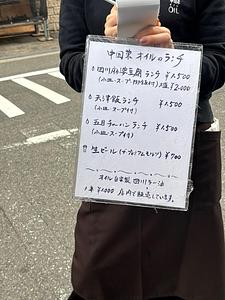 OIL
中国菜 オイルのランチ
四川麻婆豆腐ランチ ¥1,500
(小皿・スープ・ 付) ¥2,000
天津飯ランチ ¥1,500
(小皿・スープ付)
五目チャーハンランチ ¥1,500
(小皿・スープ付)
生ビール(ザ・プレミアムモルツ) ¥700
オイル自家製 四川ラー油
1本 ¥1000 店内で販売しています。